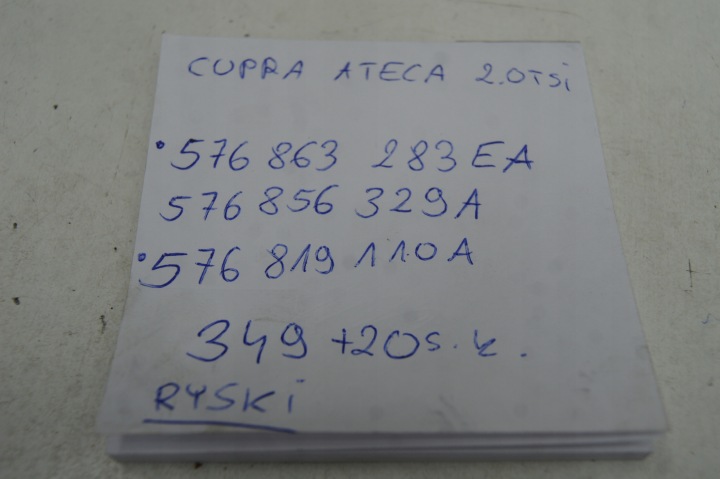 CUPRA ATECA 2.0TSi
• 576 863 283 EA
576 856 329 A
• 576 819 110 A
349 +20 s.k.
RYSKi